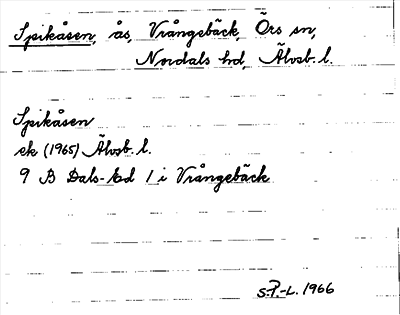 Spikåsen, ås, Vrångebäck, Örs sn,
Nordals hd, Älvsb. l.
Spikåsen
ek (1965) Älvsb. l.
9 B Dals-Ed 1 i Vrångebäck
S.P.-L. 1966